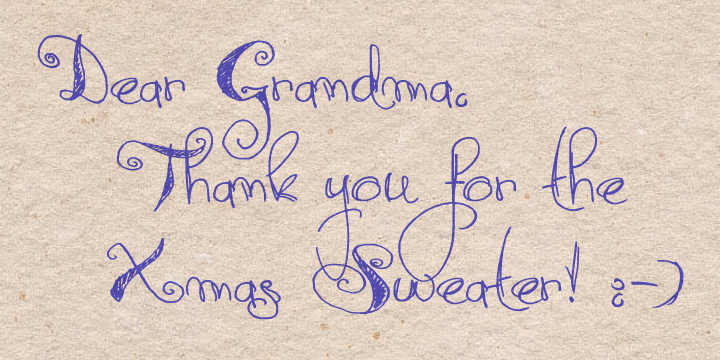 Dear Grandma,
Thank you for the
Xmas Sweater! ;-)